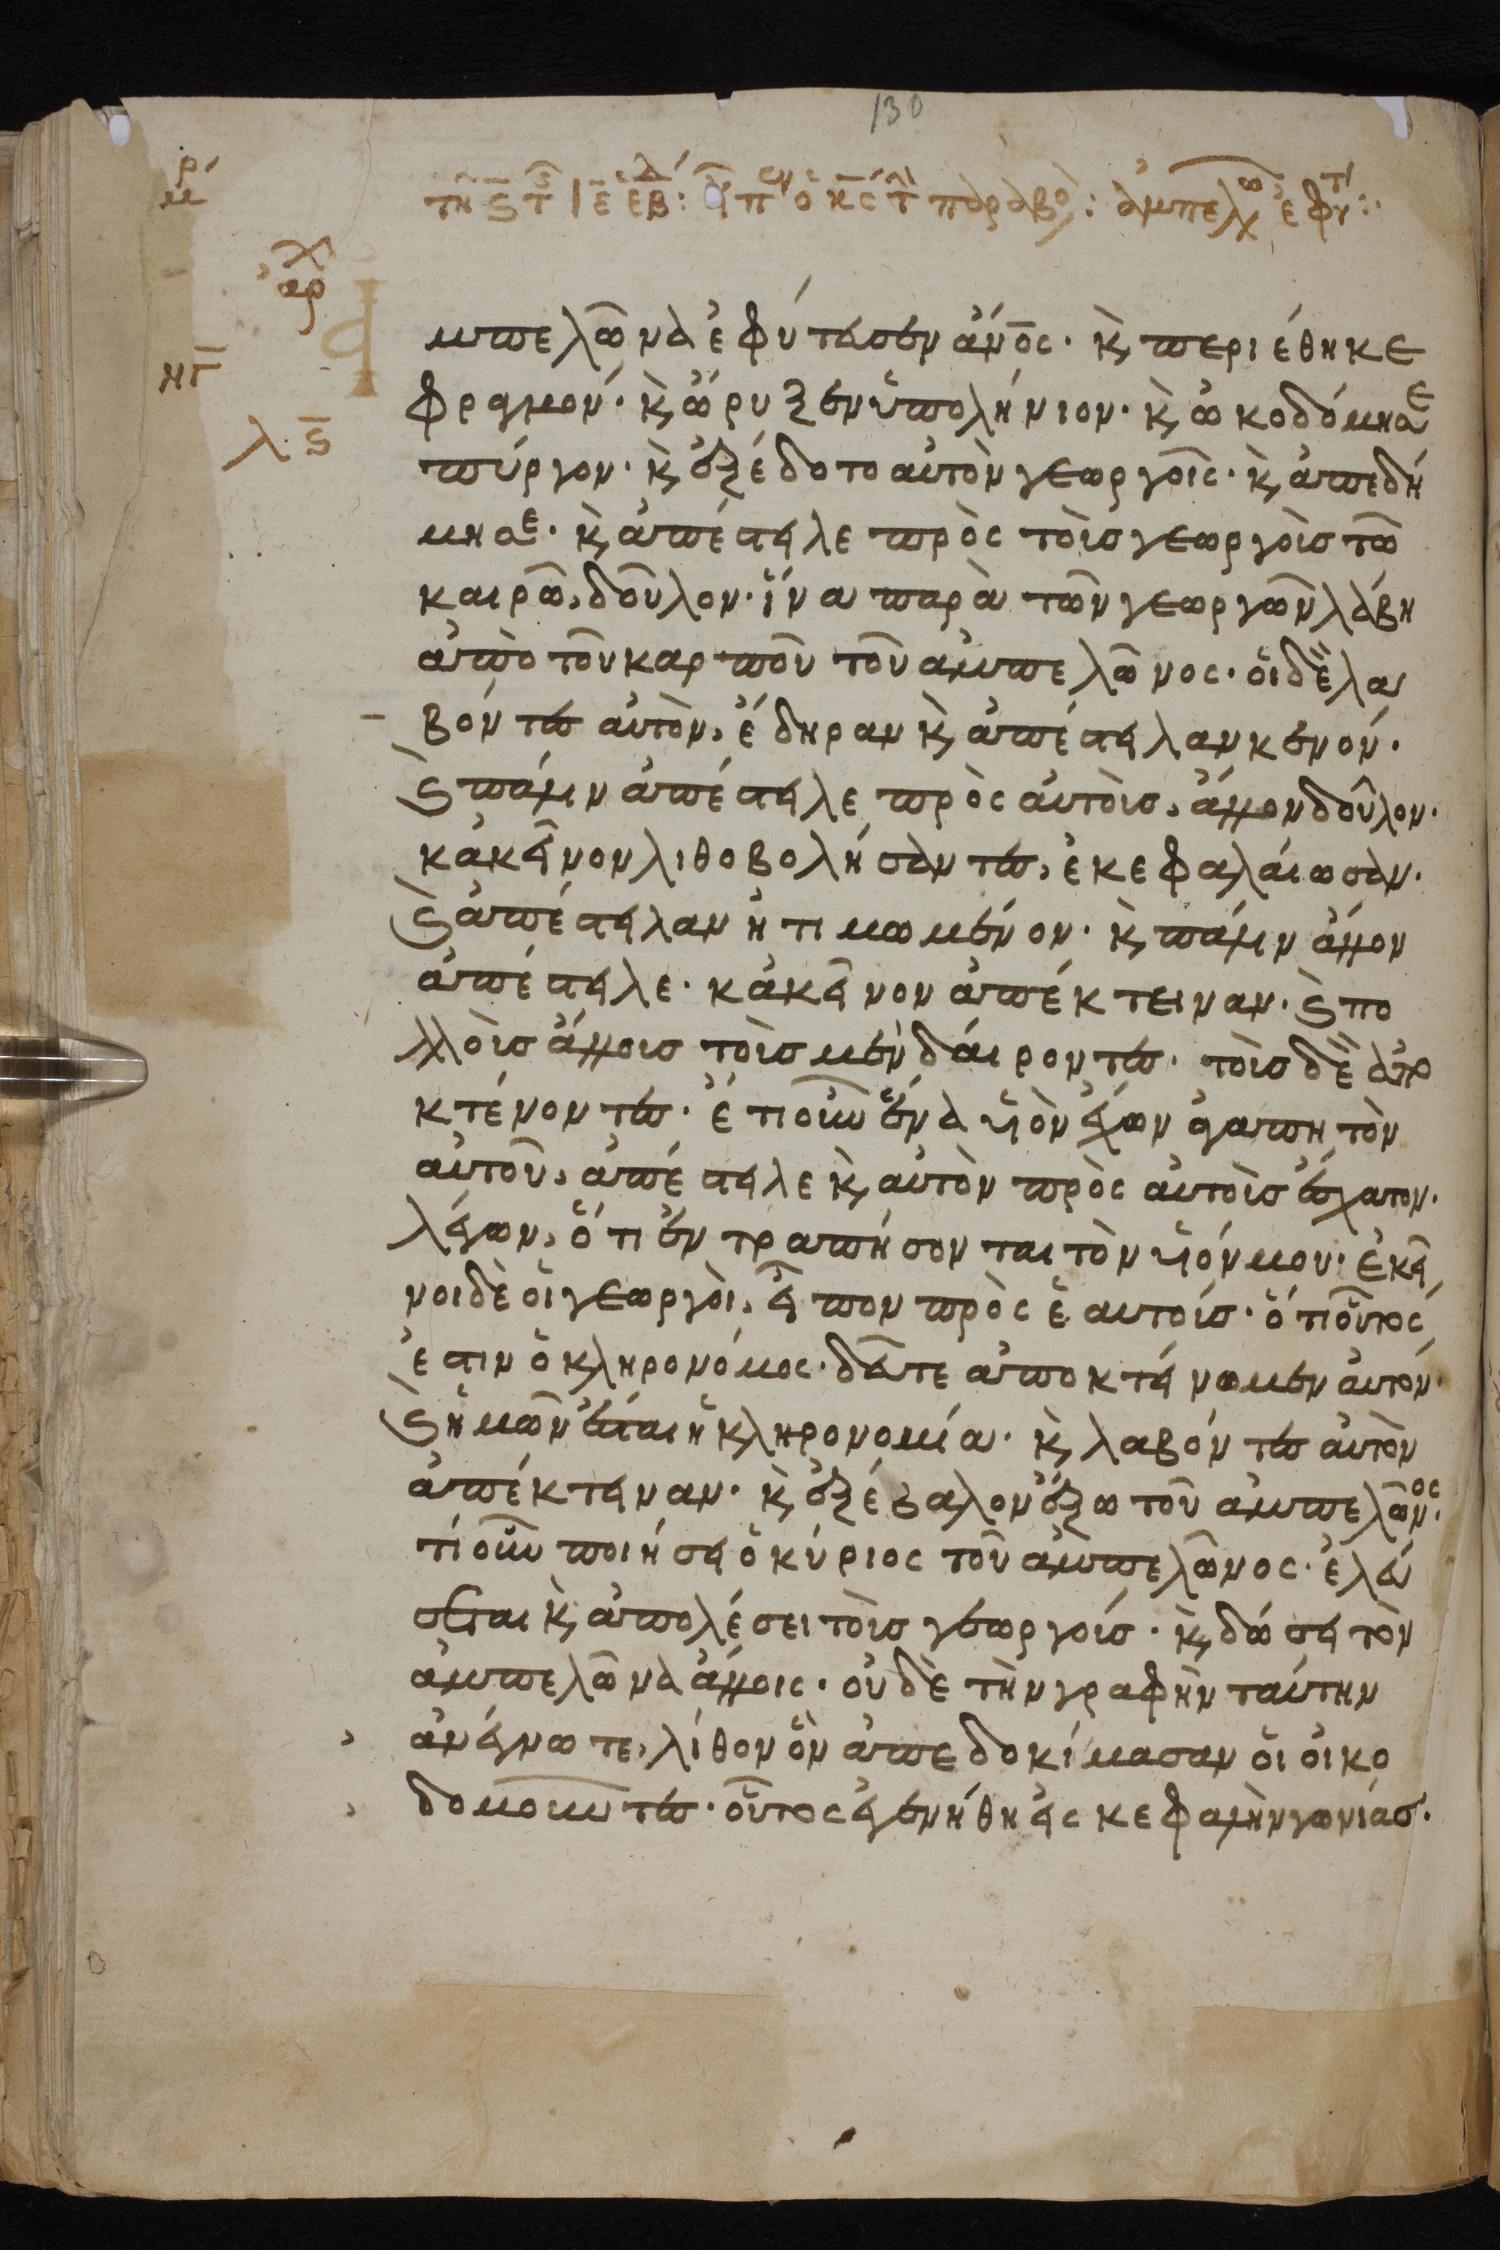 130
τῆ ς̅ τ͂ ιε̅ ἑβδ: εἶπεν ὁ κ̅ς τ παραβο: ἀμπελω ἐφυτ:
ἀρχ
ηγ̅
λ. ς̅
μπελῶνα ἐφύτευσεν ἄν̅ος. κὶ περιέθηκε
φραγμόν. κὶ ὤρυξεν ὑπολήνιον. κὶ ὠκοδόμησε
πύργον. κὶ ἐξέδοτο αὐτὸν γεωργοῖς. κὶ ἀπεδή
μησε. κὶ ἀπέστειλε πρὸς τοὺς γεωργοὺς τῶ
καιρῶ, δοῦλον. ἵνα παρὰ τῶν γεωργῶν λάβη
ἀπὸ τοῦ καρποῦ τοῦ ἀμπελῶνος. οἱ δὲ λα
βόντες αὐτὸν, ἔδηραν κὶ ἀπέστειλαν κενόν.
κὶ πάλιν ἀπέστειλε πρὸς αὐτοὺς, ἄλλον δοῦλον.
κἀκεῖνον λιθοβολήσαντες, ἐκεφαλαίωσαν.
κὶ ἀπέστειλαν ἠτιμωμένον. κὶ πάλιν ἄλλον
ἀπέστειλε. κἀκεῖνον ἀπέκτειναν. κὶ πο
λλοὺς ἄλλους τοὺς μὲν δαίροντες. τοὺς δὲ ἀπο
κτένοντες. ἔτι οὖν ἕνα υἱὸν ἔχων ἀγαπητὸν
αὐτοῦ, ἀπέστειλε κὶ αὐτὸν πρὸς αὐτοὺς ἔσχατον.
λέγων, ὅτι ἐντραπήσονται τὸν υἱόν μου. ἐκεῖ
νοι δὲ οἱ γεωργοὶ, εἶπον πρὸς ἑαυτούς. ὅτι οὗτος
ἐστιν ὁ κληρονόμος. δεῦτε ἀποκτείνωμεν αὐτόν.
κὶ ἡμῶν ἔσται ἡ κληρονομία. κὶ λαβόντες αὐτὸν
ἀπέκτειναν. κὶ ἐξέβαλον ἔξω τοῦ ἀμπελῶνος.
τί οὖν ποιήσει ὁ κύριος τοῦ ἀμπελῶνος. ἐλεύ
σεται κὶ ἀπολέσει τοὺς γεωργούς. κὶ δώσει τὸν
ἀμπελῶνα ἄλλοις. οὐδὲ τὴν γραφὴν ταύτην
ἀνέγνωτε, λίθον ὃν ἀπεδοκίμασαν οἱ οἰκο
δομοῦντες. οὗτος ἐγενήθη εἰς κεφαλὴν γωνίας.